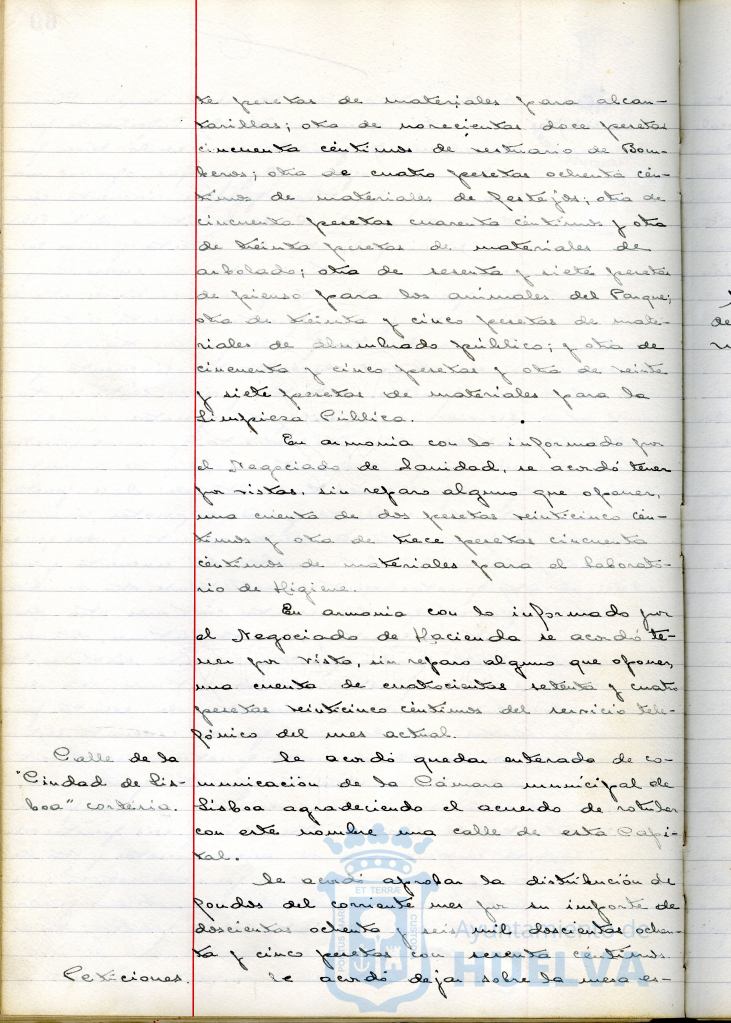 te pesetas de materiales para alcan-
tarillas; otra de novecientas doce pesetas
cincuenta céntimos de vestuario de Bom-
beros; otra de cuatro pesetas ochenta cén-
timos de materiales de festejos; otra de
cincuenta pesetas cuarenta céntimos y otra
de treinta pesetas de materiales de
arbolado; otra de sesenta y siete pesetas
de pienso para los animales del Parque;
otra de treinta y cinco pesetas de mate-
riales de alumbrado público; y otra de
cincuenta y cinco pesetas y otra de veinte
y siete pesetas de materiales para la
Limpieza Pública.
En armonia con lo informado por
el Negociado de Sanidad, se acordó tener
por vistas, sin reparo alguno que oponer,
una cuenta de dos pesetas veinticinco cén-
timos y otra de trece pesetas cincuenta
céntimos de materiales para el Laborato-
rio de Higiene.
En armonia con lo informado por
el Negociado de Hacienda se acordó te-
ner por vista, sin reparo alguno que oponer,
una cuenta de cuatrocientas setenta y cuatro
pesetas veinticinco céntimos del servicio tele-
fónico del mes actual.
Calle de la
"Ciudad de Lis-
boa" cortesia.
Se acordó quedar enterado de co-
municación de la Cámara municipal de
Lisboa agradeciendo el acuerdo de rotular
con este nombre una calle de esta Capi-
tal.
Se acordó aprobar la distribución de
fondos del corriente mes por su importe de
doscientas ochenta y seis mil doscientas ochen-
ta y cinco pesetas con sesenta céntimos.
Peticiones.
Se acordó dejar sobre la mesa es-
PORTUS MARIS
ET TERRÆ
CUSTODIA
Ayuntamiento de
HUELVA
69
y
de